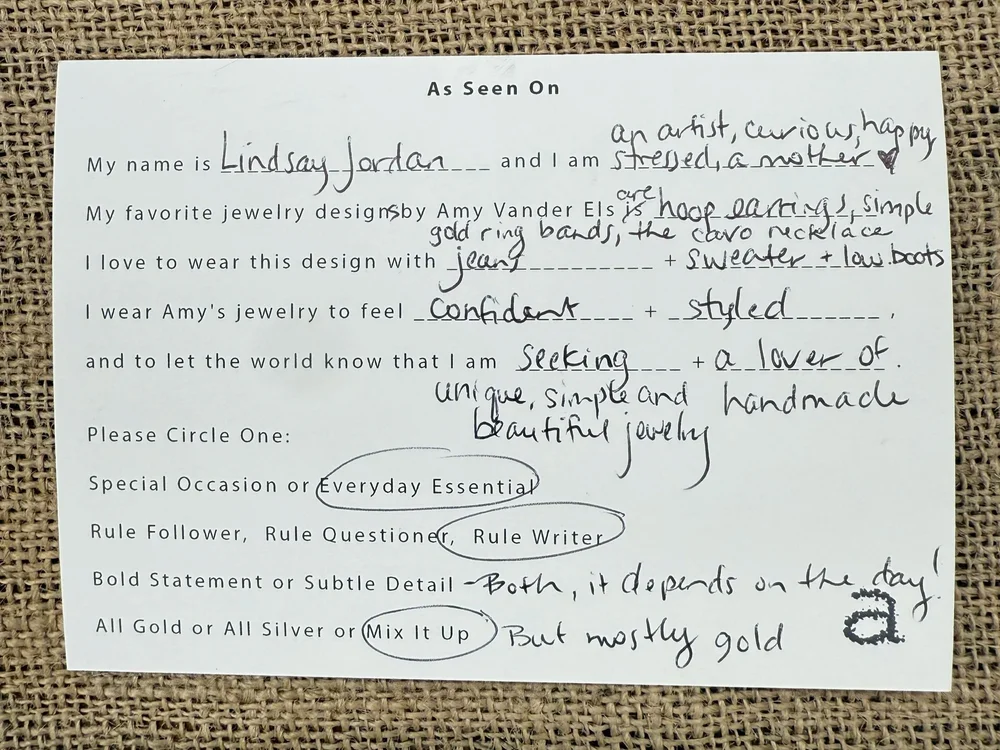 As Seen On
an artist, curious, happy
My name is Lindsay Jordan and I am stressed, a mother ♥
My favorite jewelry designs by Amy Vander Els is are hoop earrings, simple
gold ring bands, the cavo necklace
I love to wear this design with jeans + sweater + low boots
I wear Amy's jewelry to feel confident + styled ,
and to let the world know that I am seeking + a lover of .
unique, simple and handmade
beautiful jewelry
Please Circle One:
Special Occasion or Everyday Essential
Rule Follower, Rule Questioner, Rule Writer
Bold Statement or Subtle Detail - Both, it depends on the day!
All Gold or All Silver or Mix It Up But mostly gold
a